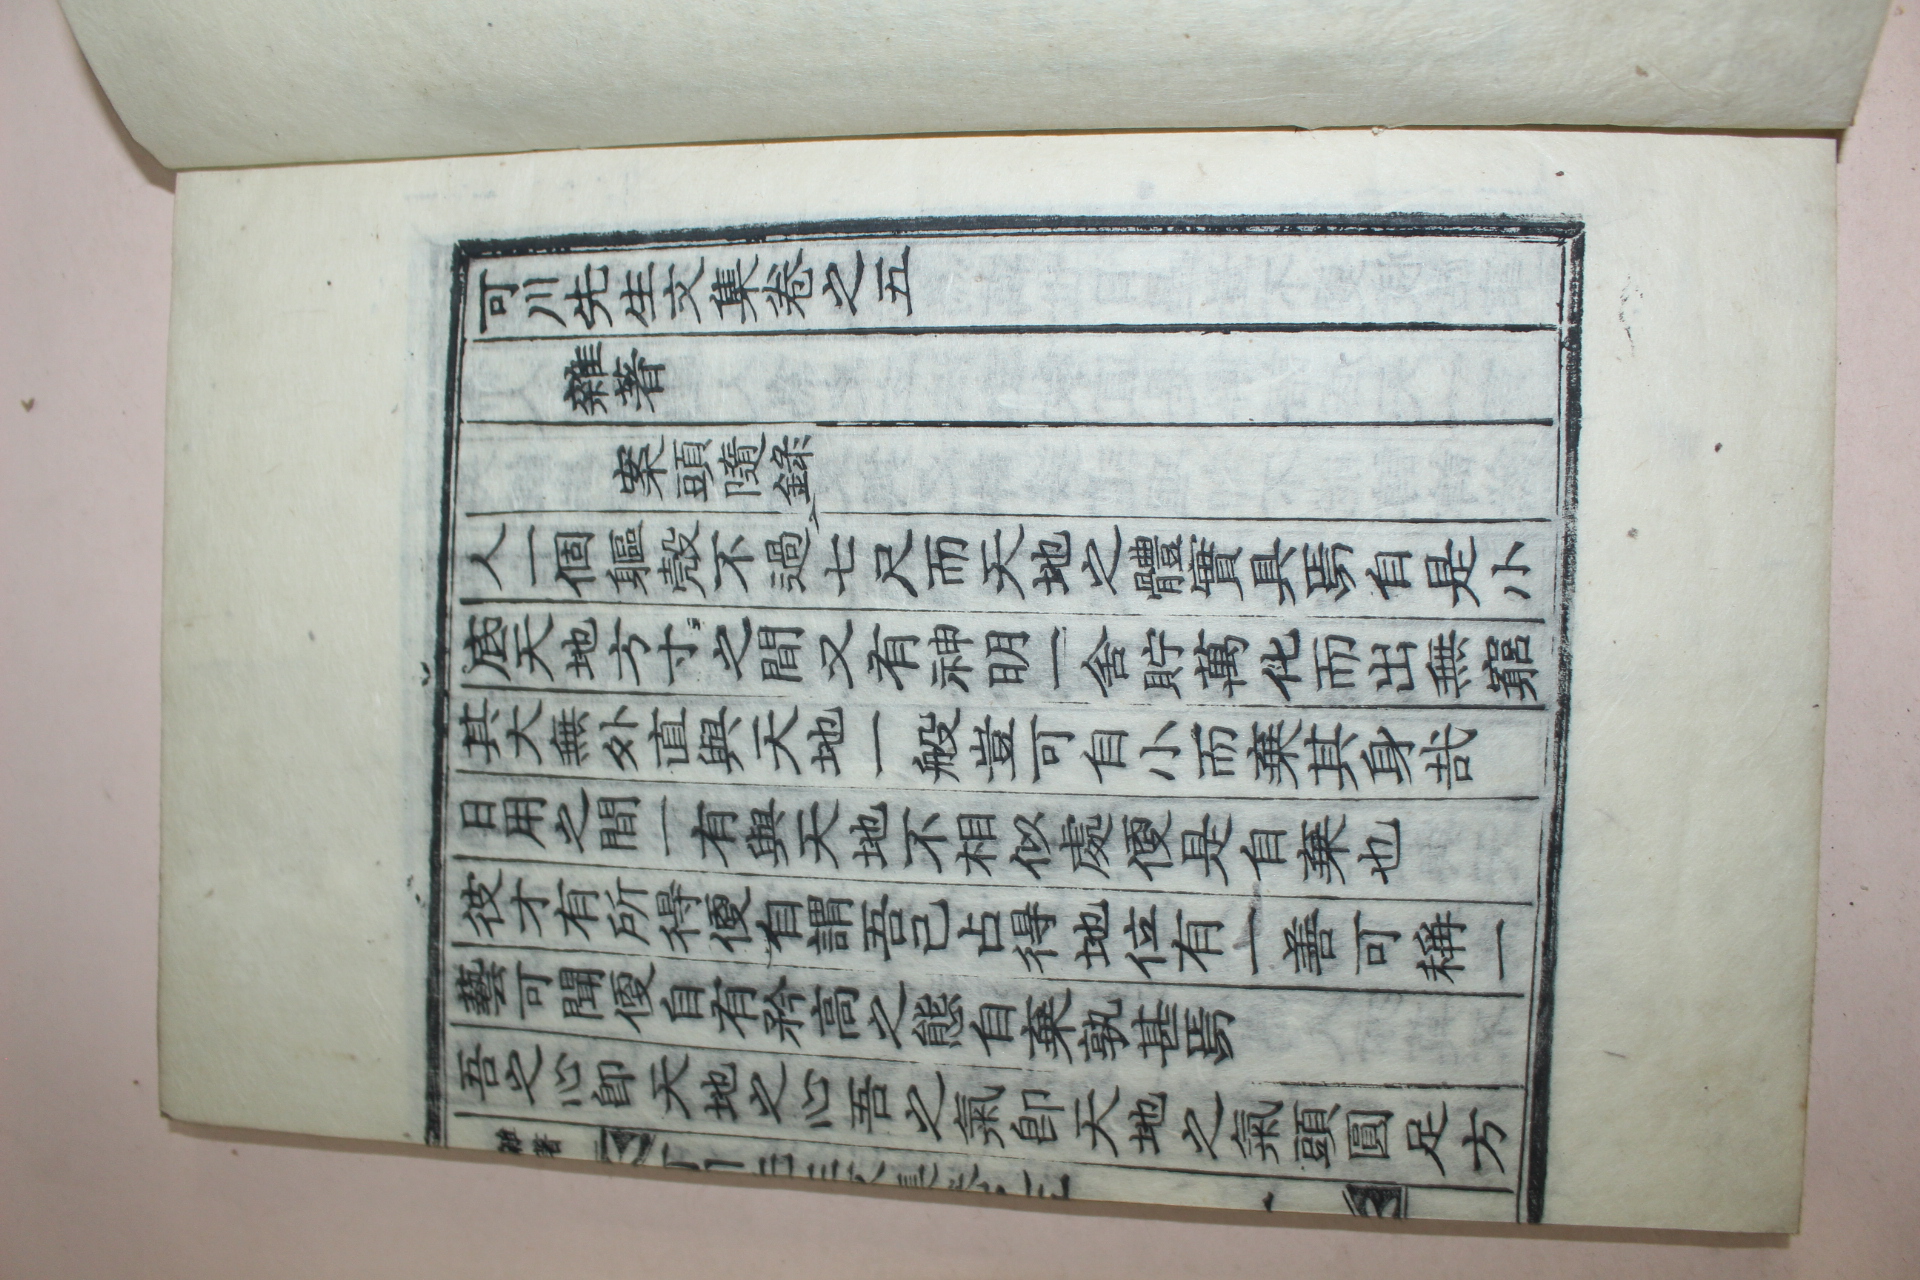 可川先生文集卷之五
雜著
案頭隨錄
人一個軀殼不過七尺而天地之體實具焉自是小
底天地方寸之間又有神明一舍貯萬化而出無窮
其大無外直與天地一般豈可自小而棄其身哉
日用之間一有與天地不相似處便是自棄也
彼才有所得便自謂吾已占得地位有一善可稱一
藝可聞便自有矜高之態自棄孰甚焉
吾之心卽天地之心吾之氣卽天地之氣頭圓足方
雜著